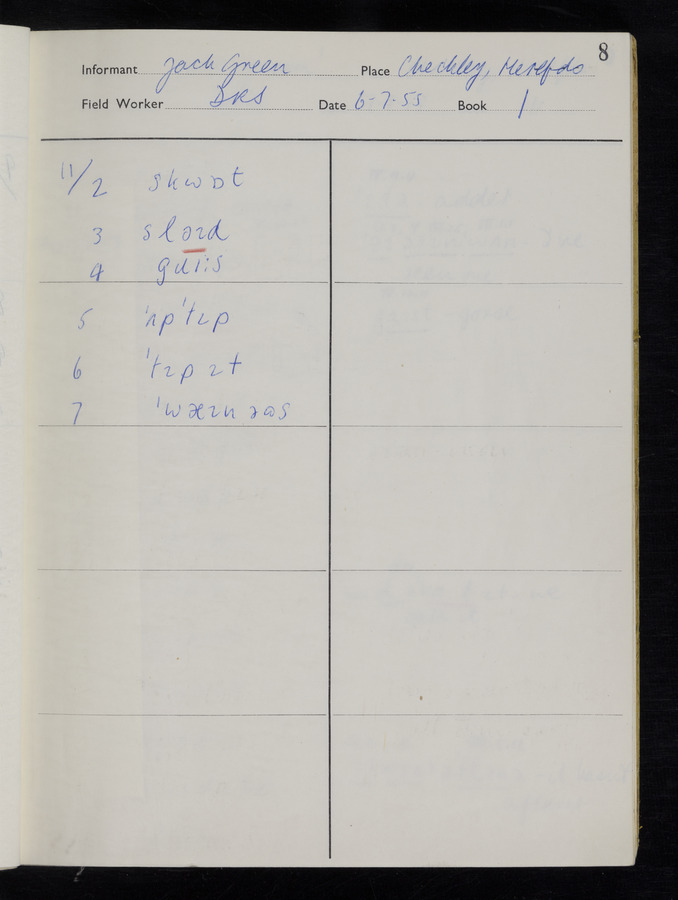 8
Informant Jack Green Place Checkley, Herefds
Field Worker DRS Date 6-7-55 Book 1
11/2 skwɒt
3 slɑɪd
4 gɹiːs
5 ˈʌpˈtɪp
6 ˈtɪp ɪt
7 ˈwæɪn əɷs